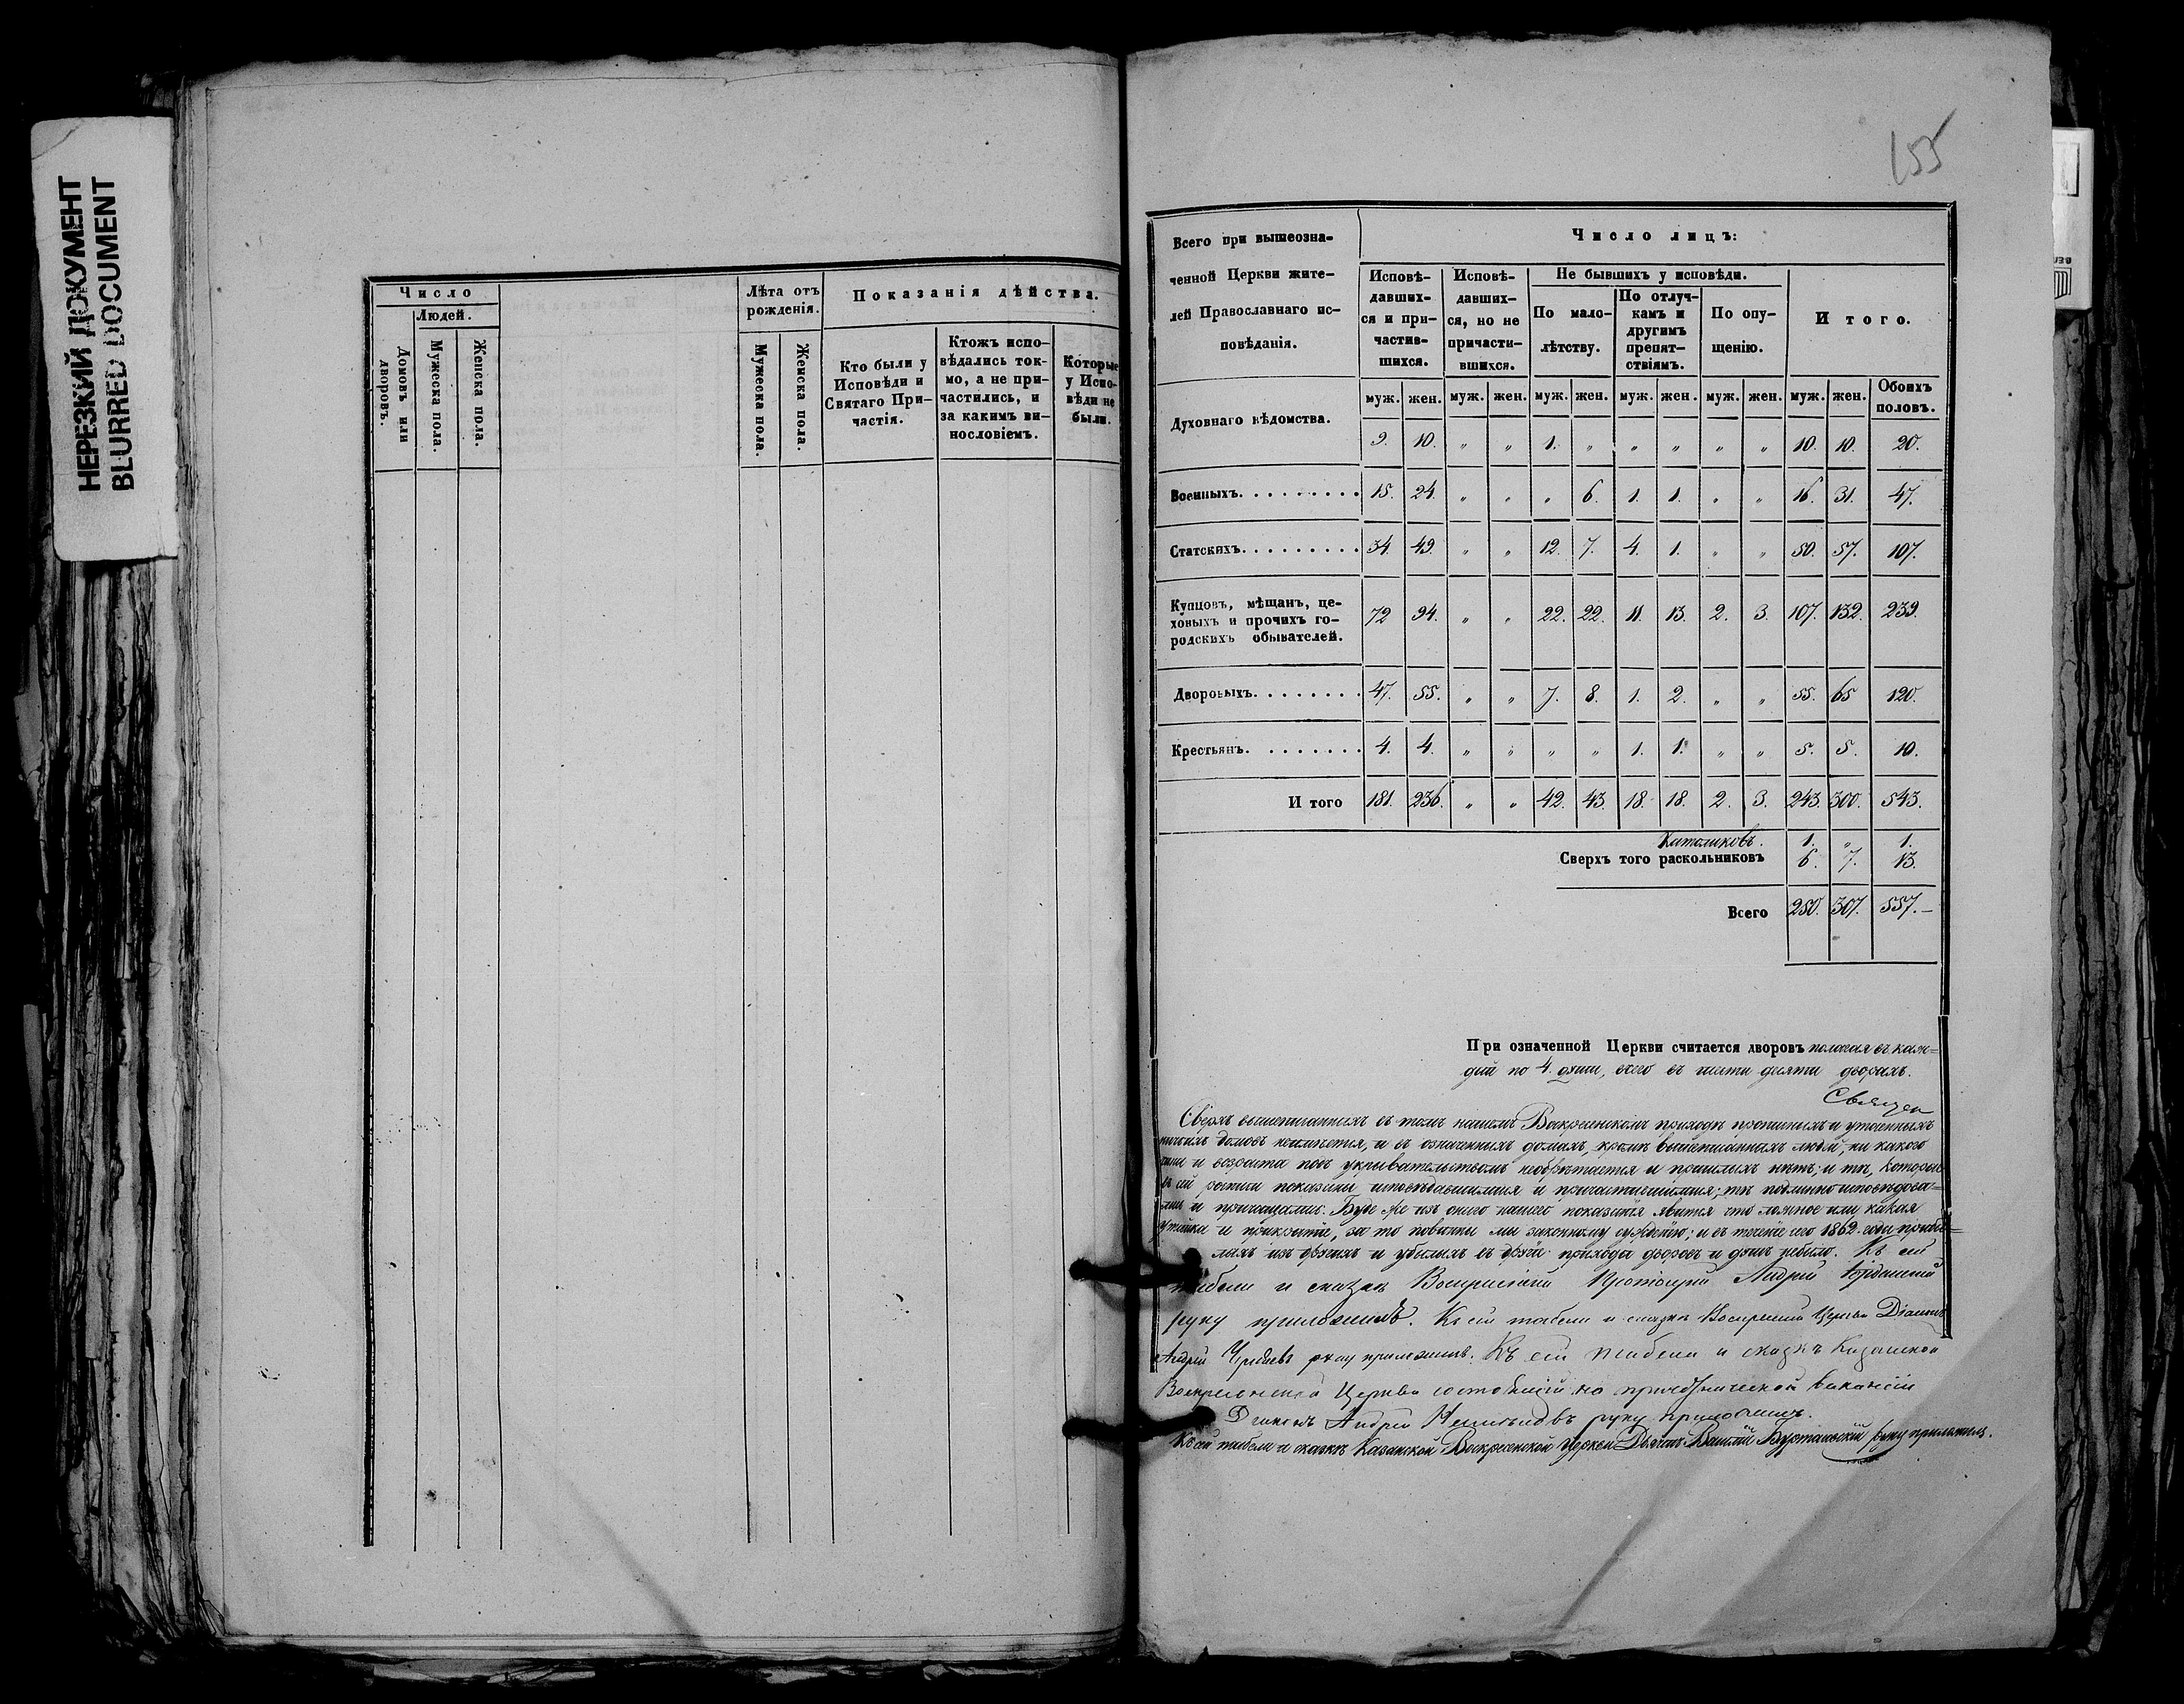 НЕРЕЗКИЙ ДОКУМЕНТ
BLURRED DOCUMENT
155
Число
Людей.
Домовъ или дворовъ.
Мужеска пола.
Женска пола.
Лѣта отъ рожденія.
Мужеска пола.
Женска пола.
Показанія дѣйства.
Кто были у Исповѣди и Святаго Причастія.
Ктожъ исповѣдались токмо, а не причастились, и за какимъ винословіемъ.
Которые у Исповѣди не были.
Всего при вышеозначенной Церкви жителей Православнаго исповѣданія.
Число лицъ:
Исповѣдавшихся и причастившихся.
Исповѣдавшихся, но не причастившихся.
Не бывшихъ у исповѣди.
По малолѣтству.
По отлучкамъ и другимъ препятствіямъ.
По опущенію.
И того.
муж. жен. муж. жен. муж. жен. муж. жен. муж. жен. муж. жен. Обоихъ половъ.
Духовнаго вѣдомства. 9. 10. " " 1. " " " " " 10. 10. 20.
Военныхъ. 15. 24. " " " 6. 1. 1. " " 16. 31. 47.
Статскихъ. 34. 49. " " 12. 7. 4. 1. " " 50. 57. 107.
Купцовъ, мѣщанъ, цеховыхъ и прочихъ городскихъ обывателей. 72 94. " " 22. 22. 11. 13. 2. 3. 107. 132. 239.
Дворовыхъ. 47. 55. " " 7. 8. 1. 2. " " 55. 65 120.
Крестьянъ. 4. 4. " " " " 1. 1. " " 5. 5. 10.
И того 181. 236. " " 42. 43. 18. 18. 2. 3. 243. 300. 543.
Католиковъ. 1. " 1.
Сверхъ того раскольниковъ 6. 7. 13.
Всего 250. 307. 557.—
При означенной Церкви считается дворовъ полагая въ каж-
дый по 4. души, всего въ шести десяти дворахъ.
Сверхъ вышеписанныхъ въ томъ нашемъ Воскресенскомъ приходѣ прописныхъ и утаенныхъ
домовъ неимѣется, и въ означенныхъ домахъ, кромѣ вышеписанныхъ людей, ни какого
чина и возраста подъ укрывательствомъ необрѣтается и пришлыхъ нѣтъ; и тѣ, которые
въ сей росписи показаны исповѣдавшимися и причастившимися; тѣ подлинно исповѣдова-
лись и причащались. Буде же изъ онаго нашего показанія явится что ложное или какая
утайка и прикрытіе, за то повинны мы законному сужденію; и въ теченіе сего 1862. года прибы-
лыхъ изъ другихъ и убылыхъ въ другіе прихода дворовъ и душъ небыло. Къ сей
табели и сказкѣ Воскресенскій Протоіерей Андрей Іорданскій
руку приложилъ. Къ сей табели и сказкѣ Воскресенской Церкви Діаконъ
Андрей руку приложилъ. Къ сей табели и сказкѣ Казанской
Воскресенской Церкви состоящій на причетнической вакансіи
Діаконъ Андрей руку приложилъ.
Къ сей табели и сказкѣ Казанской Воскресенской церкви Дьячекъ Василій руку приложилъ.